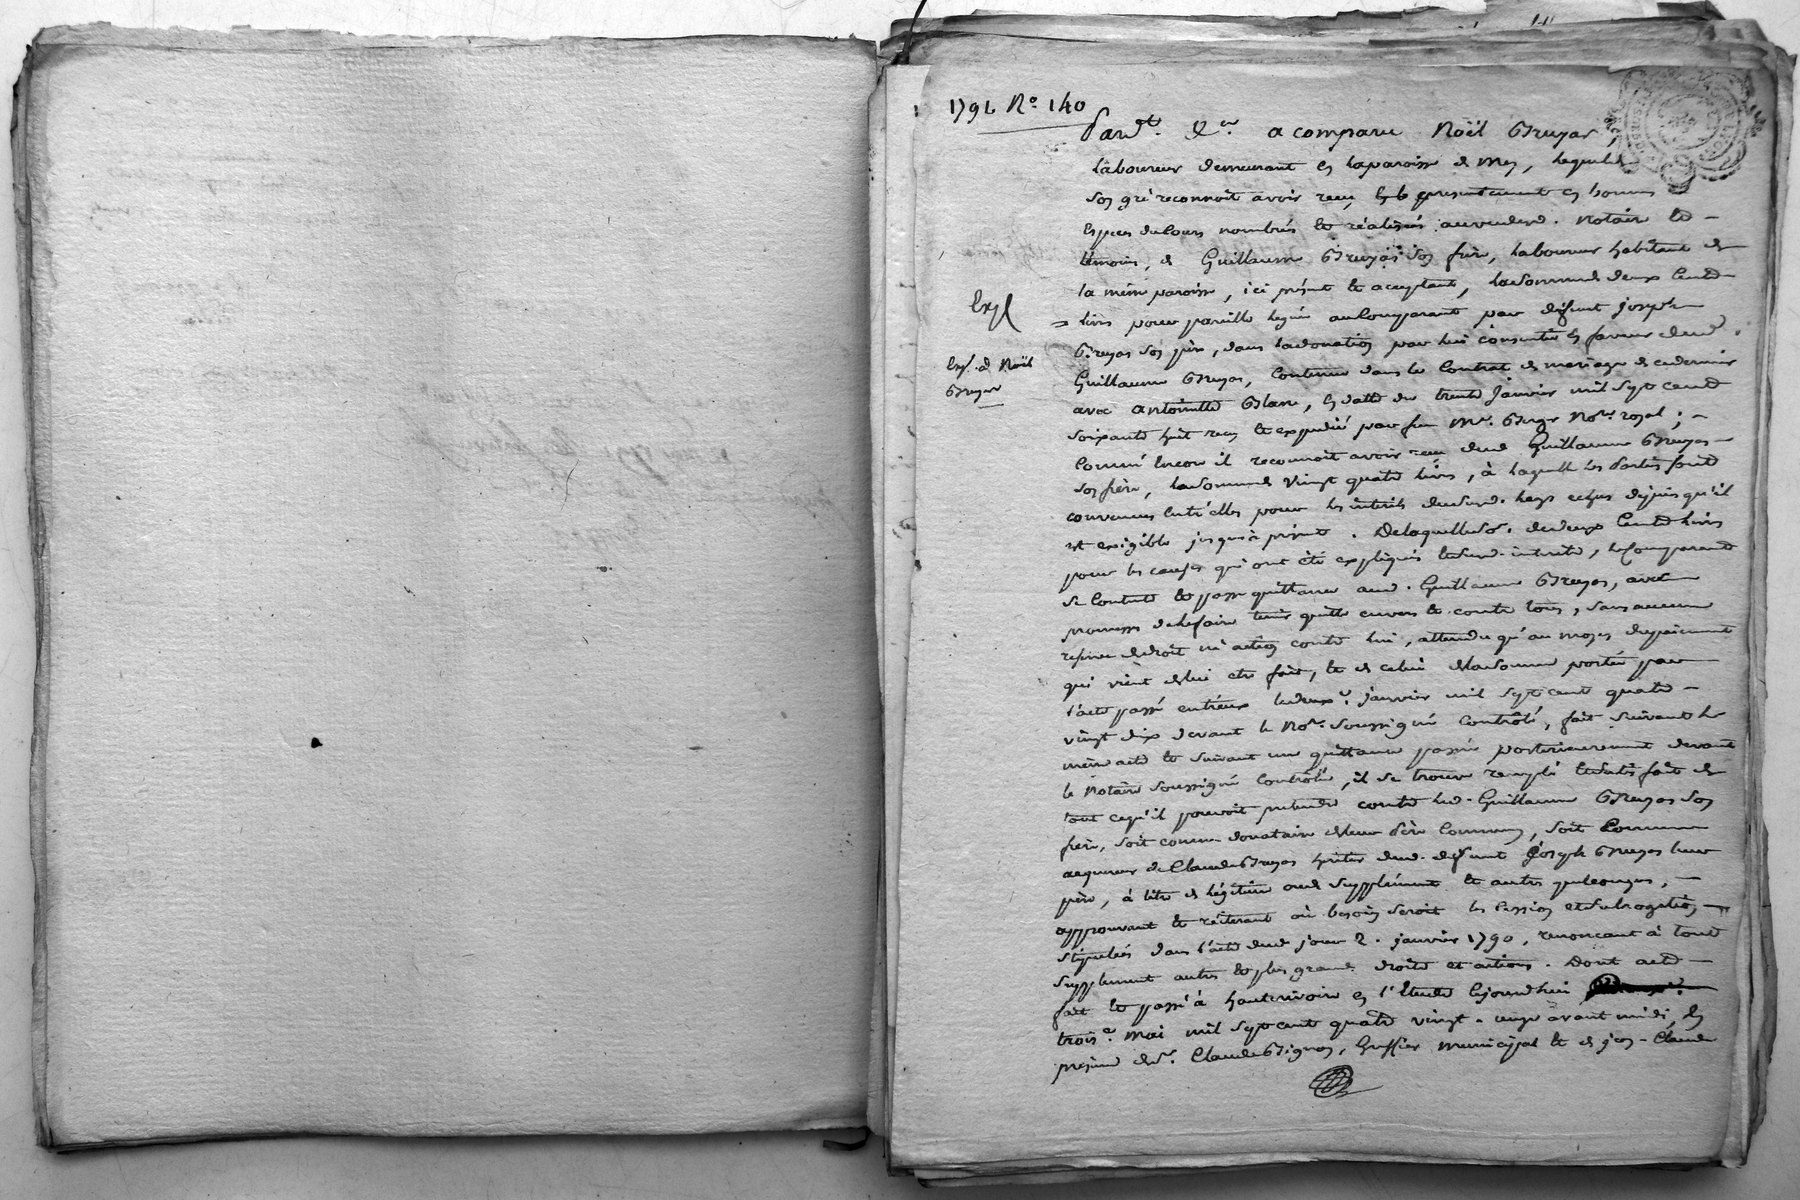 1791 N.º 140
Pard.t &.ª a comparu Noël Gruyas,
laboureur demeurant en la paroisse de Mey, lequel de
son gré reconnoit avoir recu presentement en bonnes
Especes de cours nombrés et réalisés au vu dud. Notaire et
témoins, de Guillaume Gruyas son frère, laboureur habitant de
la même paroisse, ici présent et acceptant, la somme de deux Cent
livres pour pareille leguée au Comparant par défunt joseph
Gruyas son père, dans la donation par lui consentie en faveur dud.
Guillaume Gruyas, Contenue dans le Contrat de mariage de ce dernier
avec antoinette Blanc, en datte du trente Janvier mil Sept cent
soixante huit recu et expedié par feu M.e No.re royal ;
Comme Encore il reconnoit avoir recu dud Guillaume Gruyas
son frère, la somme de Vingt quatre livres, à laquelle les parties sont
convenues entr'elles pour les intérêts dud. legs echus depuis qu'il
est exigible jusqu'à présent . De laquelle so. de deux Cent livres
pour les causes qui ont été expliqués et dud. interets, le Comparant
se Contente et passe quittance aud. Guillaume Gruyas, avec
promesse de le faire tenir quitte envers et contre tous, sans aucune
reserve de droit ni action contre lui, attendu qu'au moyen du paiement
qui vient de lui etre fait, et de celui de la Somme portée par
l'acte passé entr'eux le deux.e janvier mil Sept cent quatre
vingt dix devant le No.re Soussigné Contrôlé, fait Suivant le
même acte et Suivant une quittance passée postérieurement devant
le Notaire Soussigné Contrôlée, il se trouve rempli et satisfait de
tout ce qu'il pouvoit prétendre contre led. Guillaume Gruyas son
frère, soit comme donataire de leur Père Commun, soit Comme
acquereur de Claude Gruyas heritier dud. défunt Joseph Gruyas leur
père, à titre de légitime ou de Supplément et autres quelconques,
approuvant et réiterant où besoin Seroit les Cession et Subrogation
stipulées dans l'acte dud jour 2. janvier 1790, renoncant à tout
Supplement autres et plus grands droits et actions . Dont acte
fait et passé à hauterivoire en l'Etude Cejourd'hui
trois.e Mai mil Sept cent quatre vingt onze avant midi, En
présence de S.r Claude Pignon, Greffier Municipal et de Claude
Exp.
Exp. d. Noël
Gruyas